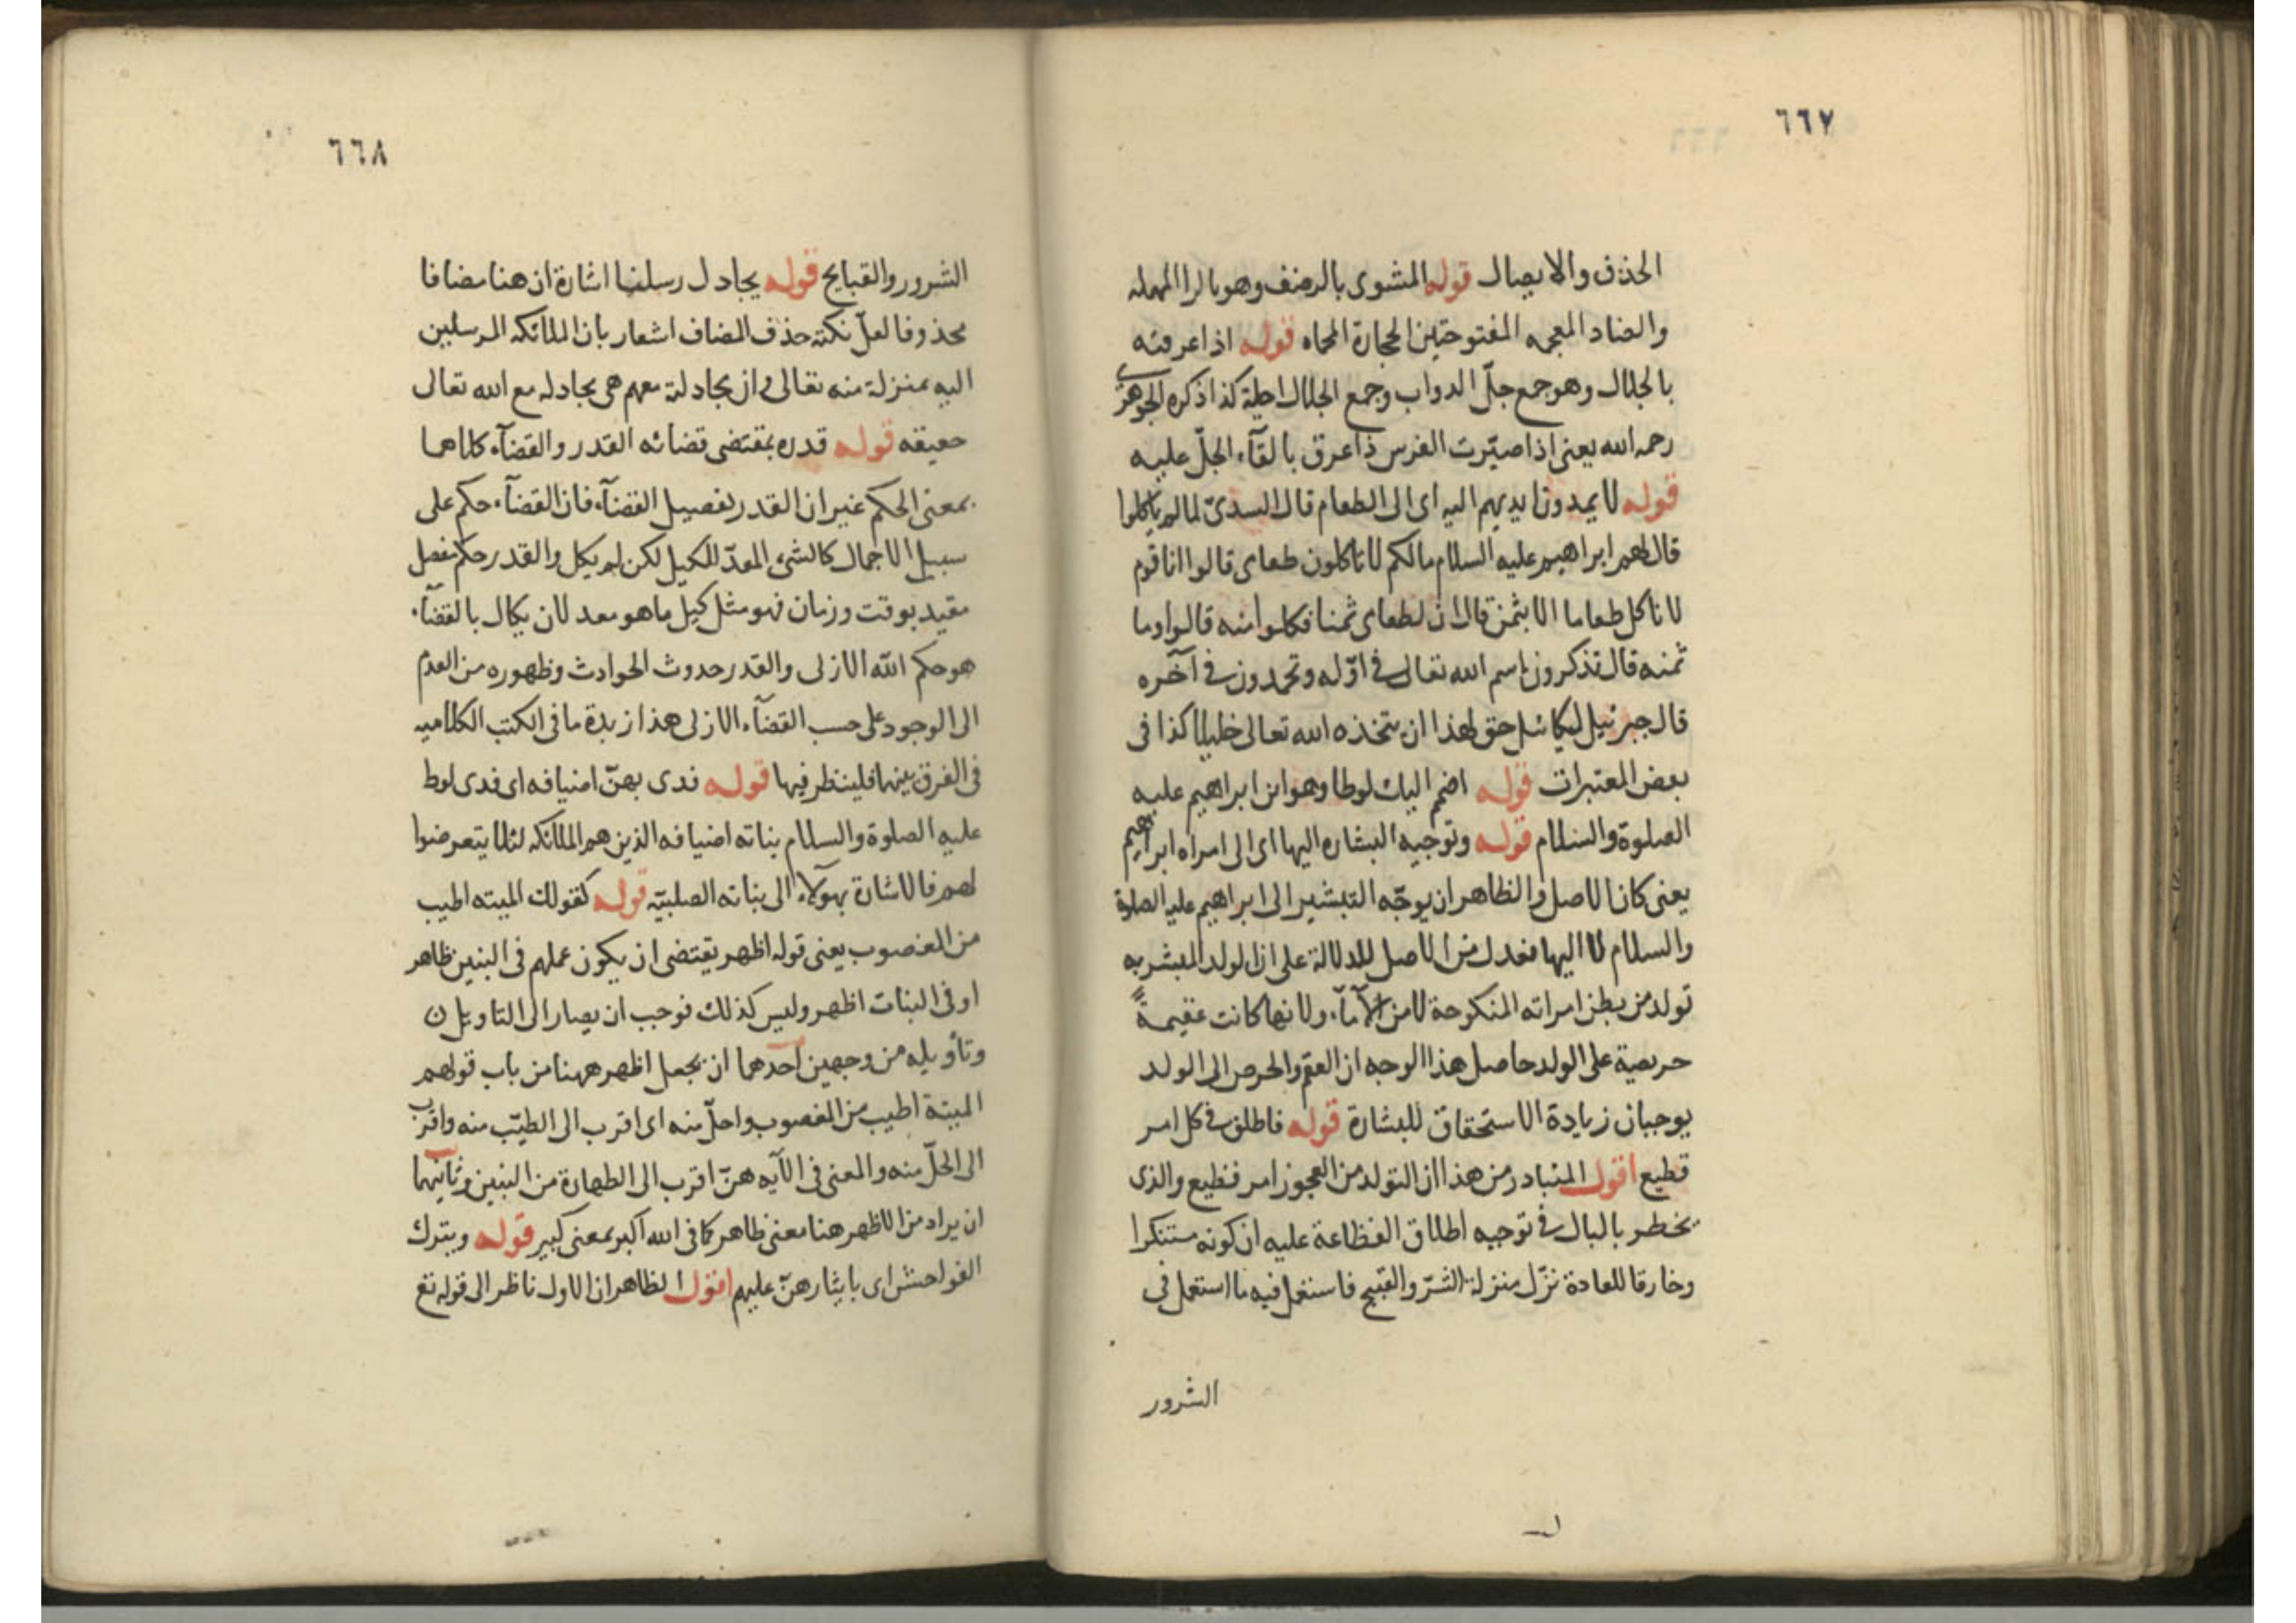 ٦٦٧
الحذف والايصال قوله المشوى بالرضف وهو بالرا المهمله
والضاد المعجمه المفتوحتين الحجارة المحماه قوله اذا عرقته
بالجلال وهو جمع جلّ الدواب وجمع الجلال اجلة كذا ذكره الجوهرى
رحمه الله يعنى اذا صيّرت الفرس ذا عرق بالقآء الجلّ عليه
قوله لا يمدون ايديهم اليه اى الى الطعام قال السدىّ لما لم ياكلوا
قال لهم ابراهيم عليه السلام مالكم لا تاكلون طعامى قالوا انا قوم
لا ناكل طعاما الا بثمن قال ان لطعامى ثمنا فكلوا منه قالوا وما
ثمنه قال تذكرون اسم الله تعالى فى اوّله وتحمدون فى آخره
قال جبرئيل لميكائيل حق لهذا ان يتخذه الله تعالى خليلا كذا فى
بعض المعتبرات قوله اضمم اليك لوطا وهو ابن ابراهيم عليه
الصلوة والسلام قوله وتوجيه البشاره اليها اى الى امراه ابراهيم
يعنى كان الاصل والظاهر ان يوجّه التبشير الى ابراهيم عليه الصلوة
والسلام لا اليها فعدل من الاصل للدلالة على ان الولد المبشر به
تولد من بطن امراته المنكوحة لا من الآمآء ولانها كانت عقيمةً
حريصة على الولد حاصل هذا الوجه ان العقم والحرص الى الولد
يوجبان زيادة الاستحقاق للبشارة قوله فاطلق فى كل امر
قطيع اقول المتبادر من هذا ان التولد من العجوز امر فظيع والذى
يخطر بالبال فى توجيه اطلاق الفظاعة عليه ان كونه مستنكرا
وخارقا للعادة نزّل منزلة الشرّ والقبيح فاستعمل فيه ما استعمل فى
الشرور
٦٦٨
الشرور والقبايح قوله يجادل رسلنا اشارة ان هنا مضافا
محذوفا لعلّ نكتة حذف المضاف اشعار بان الملائكه المرسلين
اليه بمنزلة منه تعالى وان مجادلته معهم هى مجادله مع الله تعالى
حقيقه قوله قدره بمقتضى قضائه القدر والقضآء كلاهما
بمعنى الحكم غير ان القدر تفصيل القضآء فان القضآء حكم على
سبيل الاجمال كالشئ المعدّ للكيل لكن لم يكل والقدر حكم مفصل
مقيد بوقت وزمان فهو مثل كيل ما هو معد لان يكال بالقضآء
هو حكم الله الازلى والقدر حدوث الحوادث وظهوره من العدم
الى الوجود على حسب القضآء الازلى هذا زبدة ما فى الكتب الكلاميه
فى الفرق بينهما فلينظر فيها قوله فدى بهنّ اضيافه اى فدى لوط
عليه الصلوة والسلام بناته اضيافه الذين هم الملائكه لئلا يتعرضوا
لهم فالاشارة بهولآء الى بناته الصلبيّه قوله كقولك الميته اطيب
من المغصوب يعنى قوله اظهر يقتضى ان يكون عملهم فى البنين ظاهر
او فى البنات اظهر وليس كذلك فوجب ان يصار الى التاويل
وتأويله من وجهين احدهما ان يجعل اظهر ههنا من باب قولهم
الميتة اطيب من المغصوب واحلّ منه اى اقرب الى الطيّب منه واقرب
الى الحلّ منه والمعنى فى الآيه هنّ اقرب الى الطهارة من البنين وثانيهما
ان يراد من الاظهر هنا معنى ظاهر كما فى الله اكبر بمعنى كبير قوله وبترك
الفواحش اى بايثارهنّ عليهم اقول الظاهر ان الاول ناظر الى قوله تع